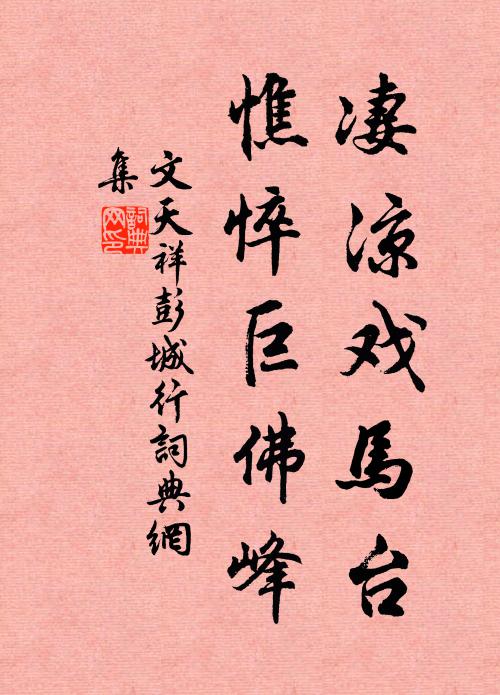 凄凉戏馬台
憔悴巨佛峰
文天祥彭城行詞典網
集
詞典
网印